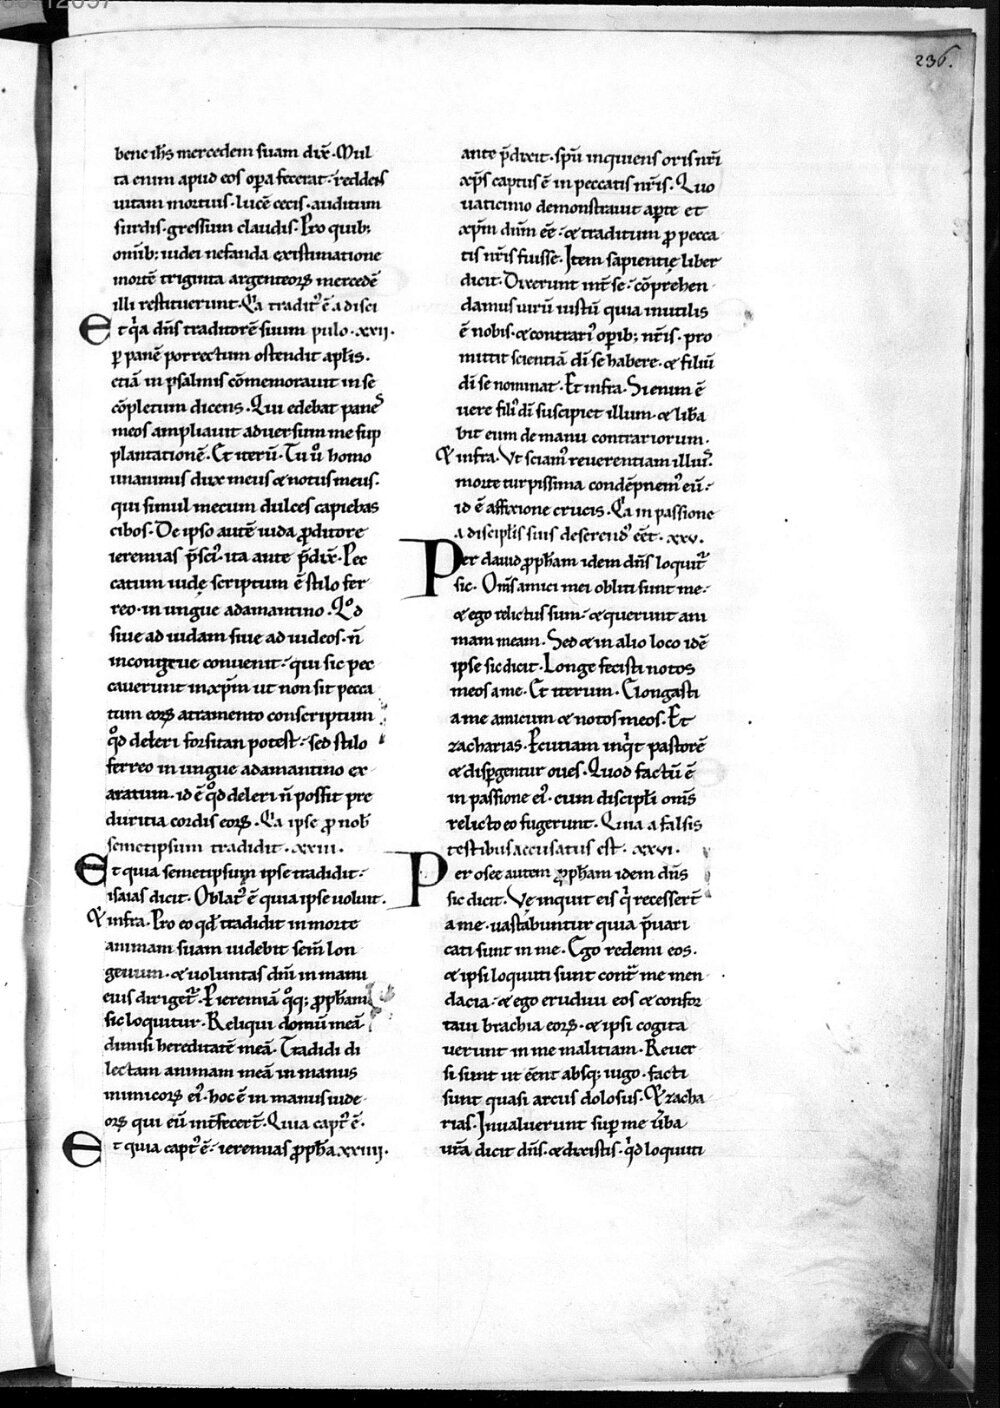 236.
bene ih̅s mercedem suam dix̅. Mul
ta enim apud eos op̅a fecerat. reddens
uitam mortuis. luce̅ cecis. auditum
surdis. gressum claudis. Pro quib;
omib; iudei nefanda existimatione
morte̅ triginta argenteoꝝ mercede̅
illi restituerunt. Qa tradit᷒ e̅ a disci
Et q̅a dn̅s traditore̅ suum pulo. xxii.
ꝑ pane̅ porrectum ostendit apl̅is.
etia̅ in psalmis co̅memorauit in se
co̅pletum dicens. Qui edebat panes
meos ampliauit aduersum me sup
plantatione̅. Et iteru̅. Tu u̅ homo
unanimis dux meus & notus meus.
qui simul mecum dulces capiebas
cibos. De ipso aute̅ iuda ꝓditore
ieremias p̅sci᷒. ita ante p̅dix̅. Pec
catum iudę scriptum e̅ stilo fer
reo. in ungue adamantino. Qd
siue ad iudam siue ad iudeos. n̅
incongrue conuenit. qui sic pec
cauerunt in xp̅m ut non sit pecca
tum eoꝝ atramento conscriptum
qd deleri forsitan potest. sed stilo
ferreo in ungue adamantino ex
aratum. id e̅ qd deleri n̅ possit pre
duritia cordis eoꝝ. Qa ipse ꝓ nob̅
semetipsum tradidit. xxiii.
Et quia semetipsum ipse tradidit.
isaias dicit. Oblat᷒ e̅ quia ipse uoluit.
& infra. Pro eo qd̅ tradidit in morte
animam suam uidebit sem̅ lon
geuum. & uoluntas dn̅i in manu
eius diriget᷒. P ieremia̅ qq; ꝓph̅am
sic loquitur. Reliqui domu̅ mea̅
dimisi hereditate̅ mea̅. Tradidi di
lectam animam mea̅ in manus
inimicoꝝ ei᷒. hoc e̅ in manus iude
oꝝ qui eu̅ int̅fecer̅t. Quia capt᷒ e̅.
Et quia capt᷒ e̅. ieremias ꝓph̅a xxiiii.
ante p̅dixit. sp̅u inquiens oris nr̅i
xp̅s captus e̅ in peccatis nr̅is. Quo
uaticinio demonstrauit aꝑte et
xp̅m dn̅m e̅e. & traditum ꝓ pecca
tis nr̅is fuisse. Item sapientię liber
dicit. Dixerunt int̅ se. co̅prehen
damus uiru̅ iustu̅ quia inutilis
e̅ nobis. & contrari᷒ oꝑib; nr̅is. pro
mittit scientia̅ di̅ se habere. & filiu̅
di̅ se nominat. Et infra. Si enim e̅
uere fili᷒ di̅ suscipiet illum. & lib̅a
bit eum de manu contrariorum.
& infra. Vt sciam᷒ reuerentiam illius.
morte turpissima conde̅pnem᷒ eu̅.
id e̅ affixione crucis. Qa in passione
a discipl̅is suis deserend᷒ e̅et. xxv.
Per dauid ꝓph̅am idem dn̅s loquit᷒
sic. Om̅s amici mei obliti sunt me.
& ego relictus sum. & querunt ani
mam meam. Sed & in alio loco ide̅
ipse sic dicit. Longe fecisti notos
meos a me. Et iterum. Elongasti
a me amicum & notos meos. Et
zacharias. Pcutiam inq̅t pastore̅
& dispgentur oues. Quod factu̅ e̅
in passione ei᷒. cum discipl̅i om̅s
relicto eo fugerunt. Quia a falsis
testibus accusatus est. xxvi.
Per osee autem ꝓph̅am idem dn̅s
sic dicit. Vę inquit eis q̅ recesser̅t
a me. uastabuntur quia p̅uari
cati sunt in me. Ego redemi eos.
& ipsi loquuti sunt contr̅ me men
dacia. & ego erudiui eos & confor
taui brachia eoꝝ. & ipsi cogita
uerunt in me malitiam. Reuer
si sunt ut e̅ent absq; iugo. facti
sunt quasi arcus dolosus. & zacha
rias. Inualuerunt suꝑ me ub̅a
ur̅a dicit dn̅s. & dixistis. q̅d loquuti